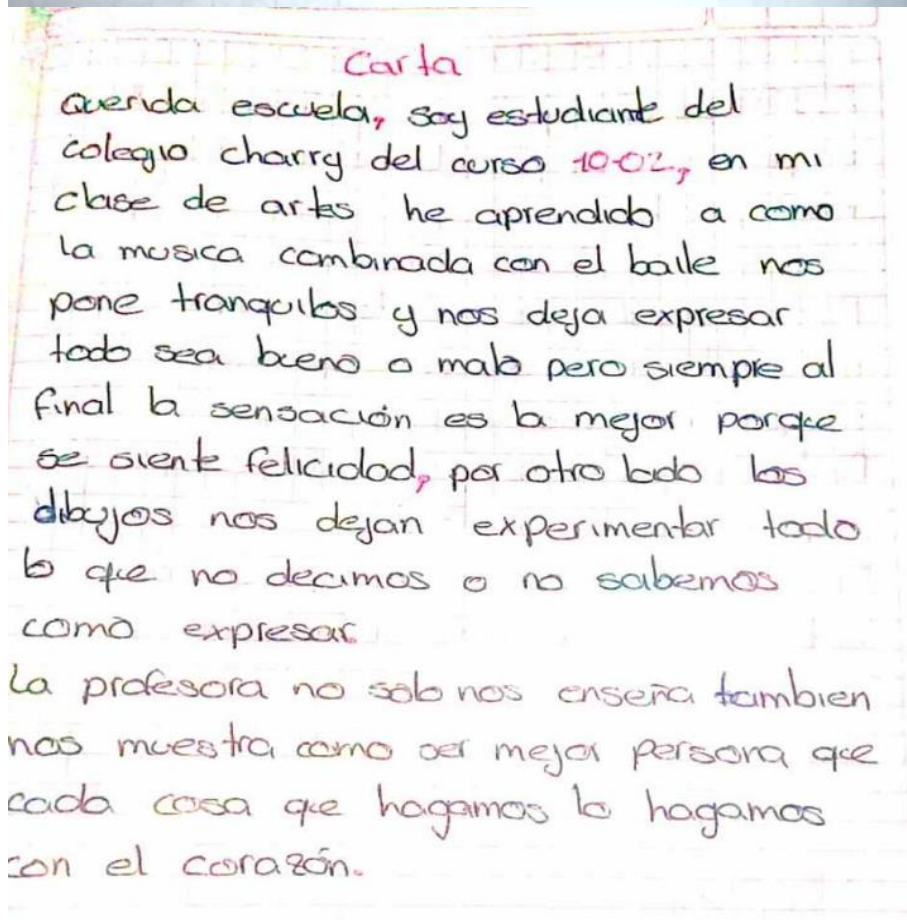 Carta
Querida escuela, soy estudiante del
colegio charry del curso 10-02, en mi
clase de artes he aprendido a como
la musica combinada con el baile nos
pone tranquilos y nos deja expresar
todo sea bueno o malo pero siempre al
final la sensación es la mejor porque
se siente felicidad, por otro lado los
dibujos nos dejan experimentar todo
lo que no decimos o no sabemos
como expresar.
La profesora no solo nos enseña tambien
nos muestra como ser mejor persona que
cada cosa que hagamos lo hagamos
con el corazón.